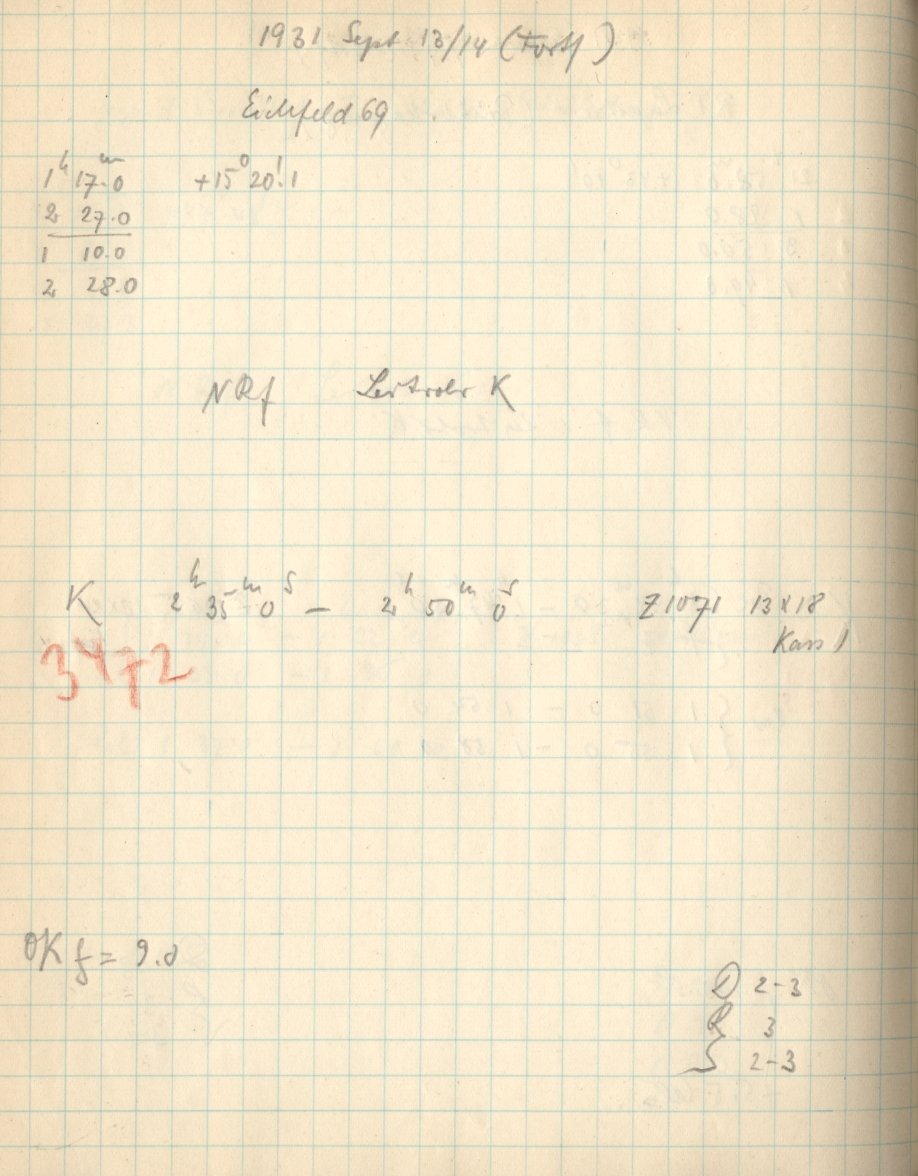 1931 Sept 13/14 (Fortf)
Eichfeld 69
1ʰ 17ᵐ.0 +15° 20'.1
2 27.0
1 10.0
2 28.0
NRf Leitrohr K
K 2ʰ 35ᵐ 0ˢ – 2ʰ 50ᵐ 0ˢ Z1071 13x18
Kass 1
3472
OK f = 9.0
D 2-3
R 3
S 2-3